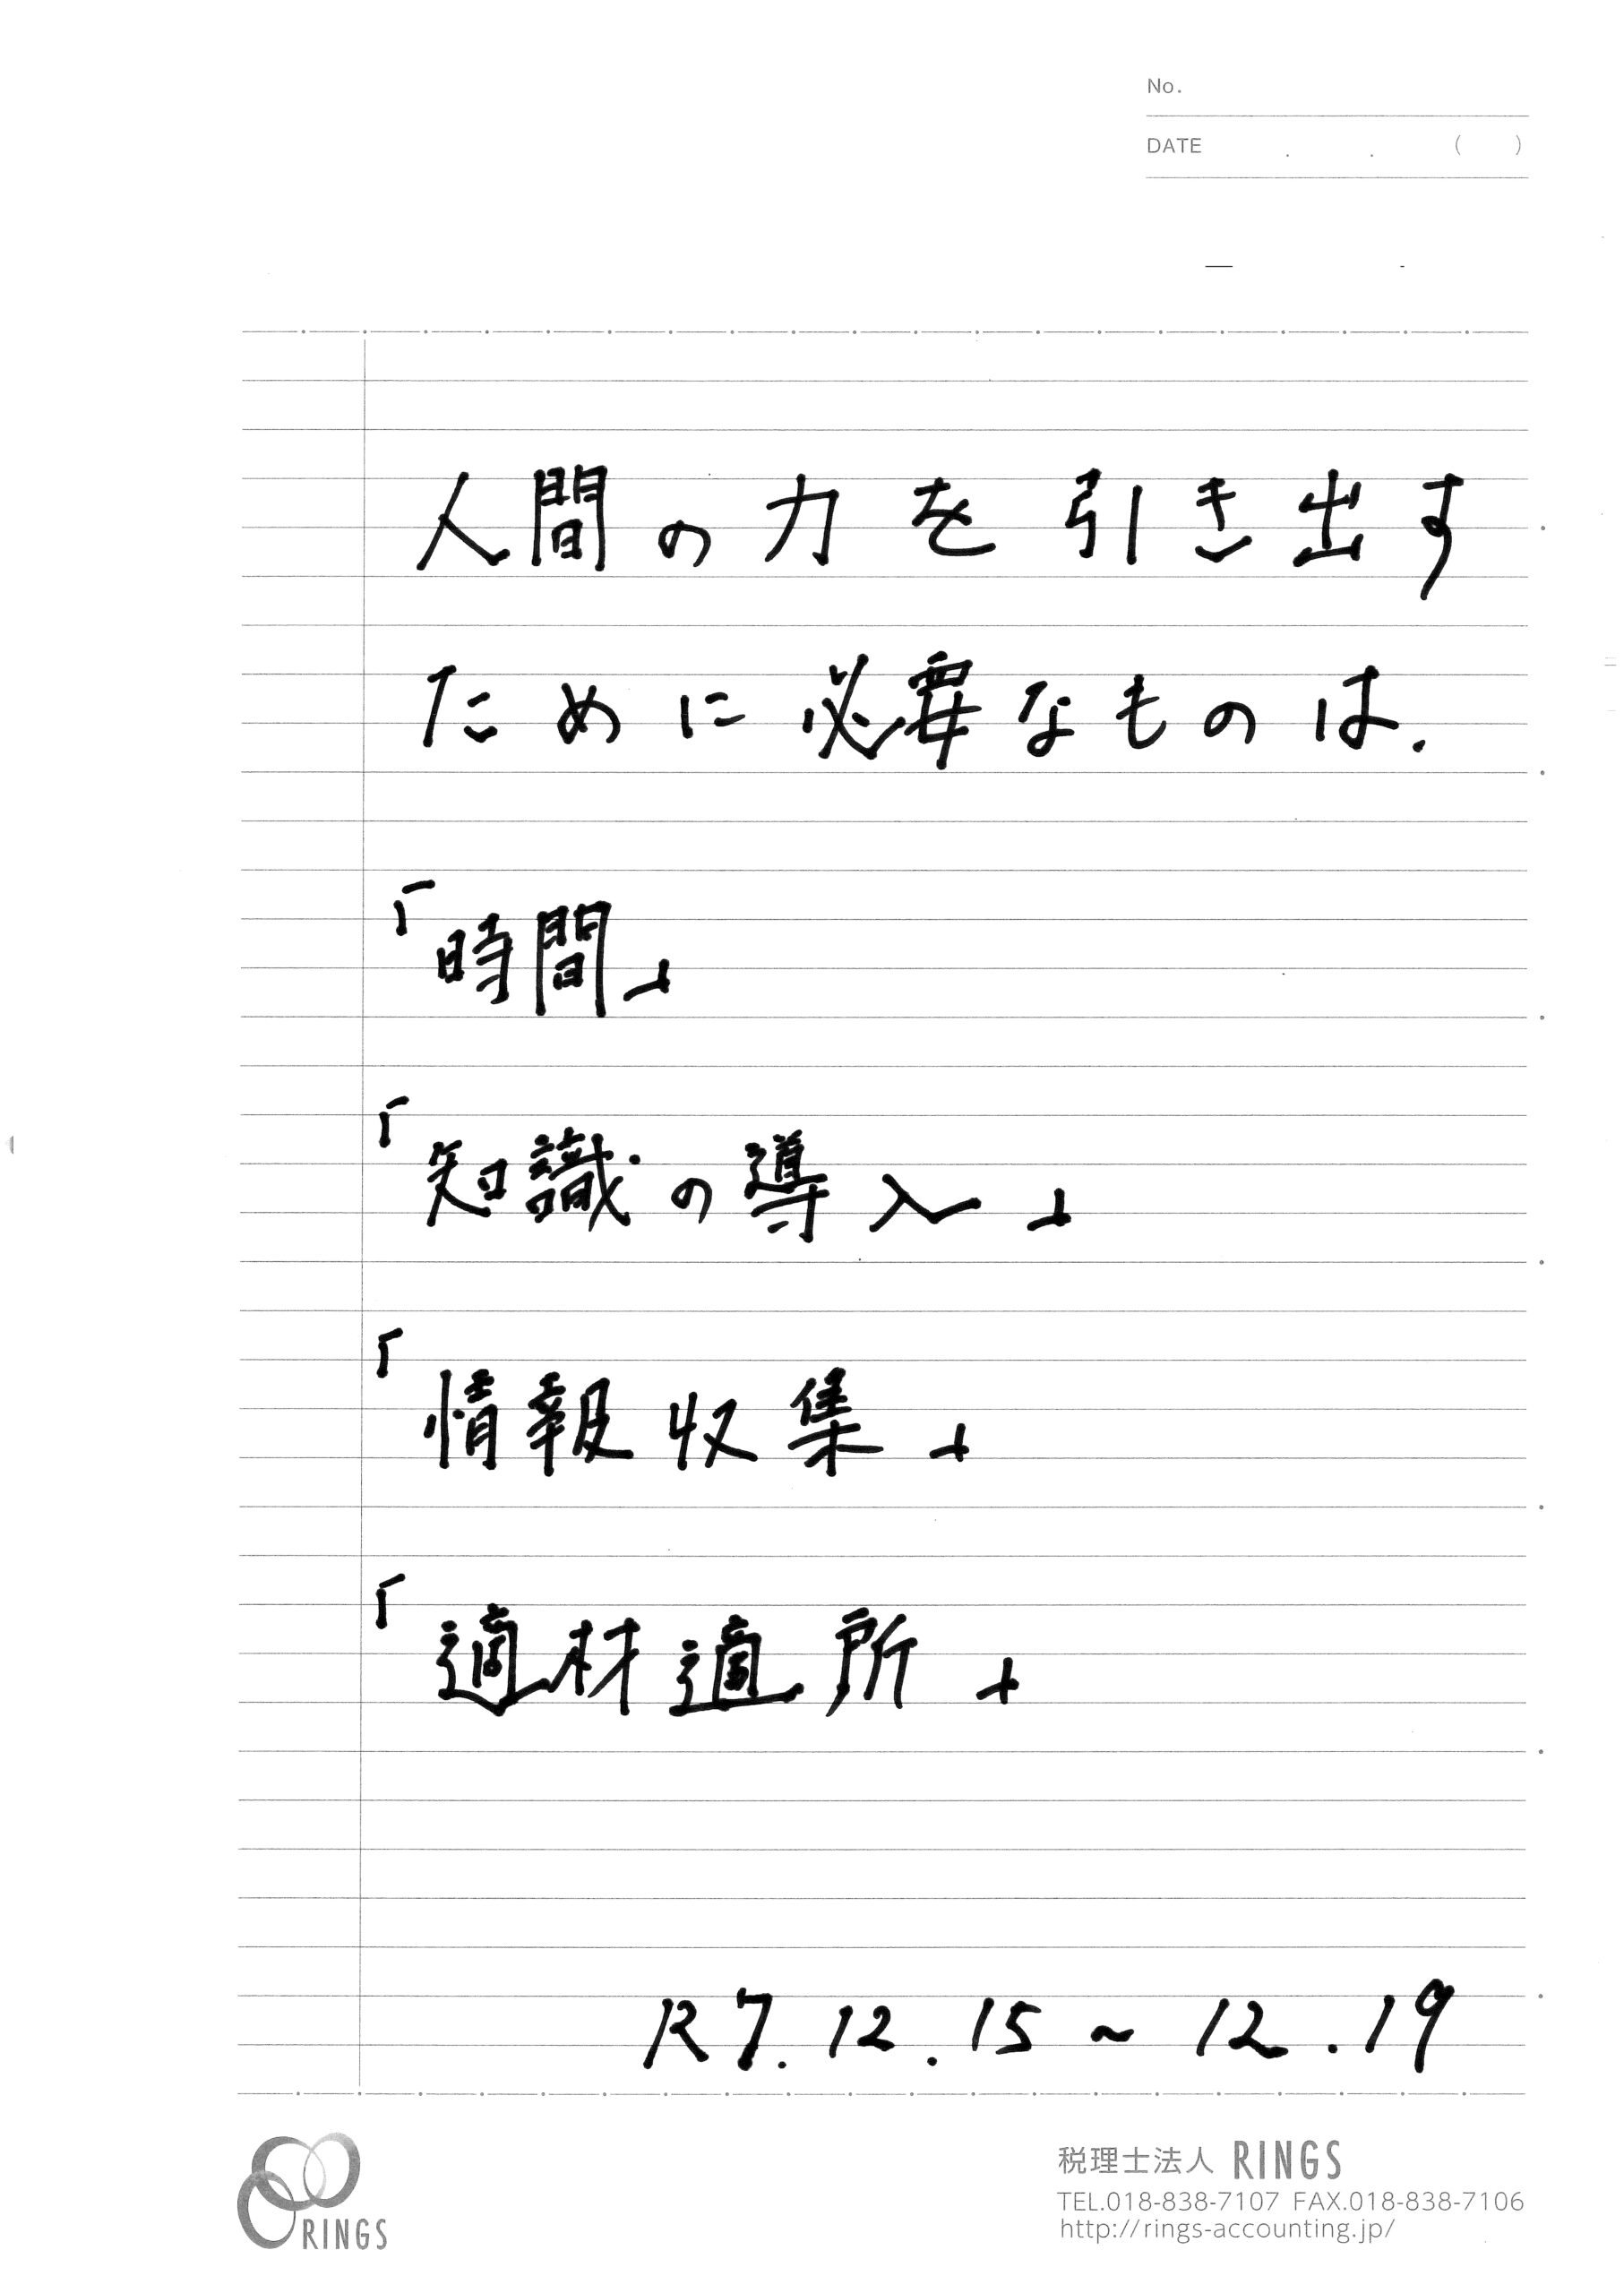 No.
DATE . . ( )
人間の力を引き出す
ために必要なものは.
「時間」
「知識の導入」
「情報収集」
「適材適所」
R7.12.15～12.19
RINGS
税理士法人 RINGS
TEL.018-838-7107 FAX.018-838-7106
http://rings-accounting.jp/